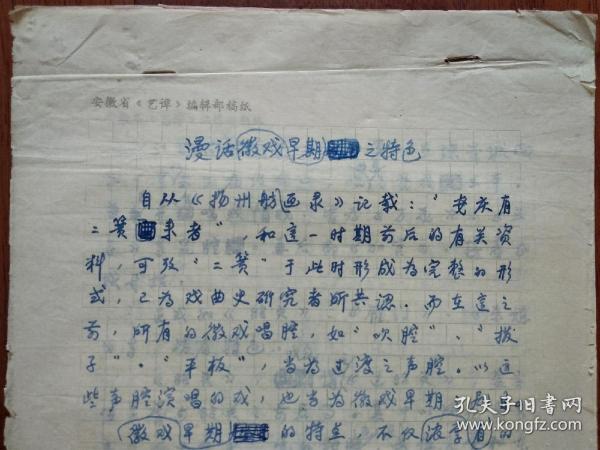 安徽省《艺谭》编辑部稿纸
漫话徽戏早期之特色
自从《扬州舫画录》记载:"安庆有
二簧来者",和这一时期前后的有关资
料,可孜"二簧"于此时形成为完整的形
式,已为戏曲史研究者所共认。而在这之
前,所有的徽戏唱腔,如"吹腔"、"拨
子"、"平板",当为过渡之声腔。以这
些声腔演唱的戏,也当为徽戏早期
徽戏早期的特点,不仅浓
的
孔夫子旧书网